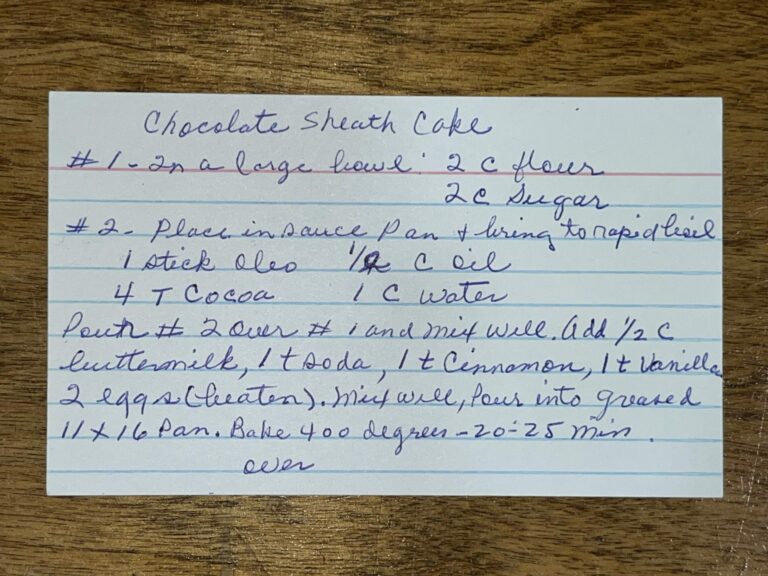 Chocolate Sheath Cake
#1 - In a large bowl: 2 C flour
2 C Sugar
#2 - Place in sauce Pan + bring to rapid boil
1 stick Oleo 1/2 C Oil
4 T Cocoa 1 C Water
Pour #2 over #1 and mix well. Add 1/2 C
buttermilk, 1 t soda, 1 t Cinnamon, 1 t Vanilla
2 eggs (beaten). Mix well, Pour into greased
11 x 16 Pan. Bake 400 degrees - 20-25 min.
over